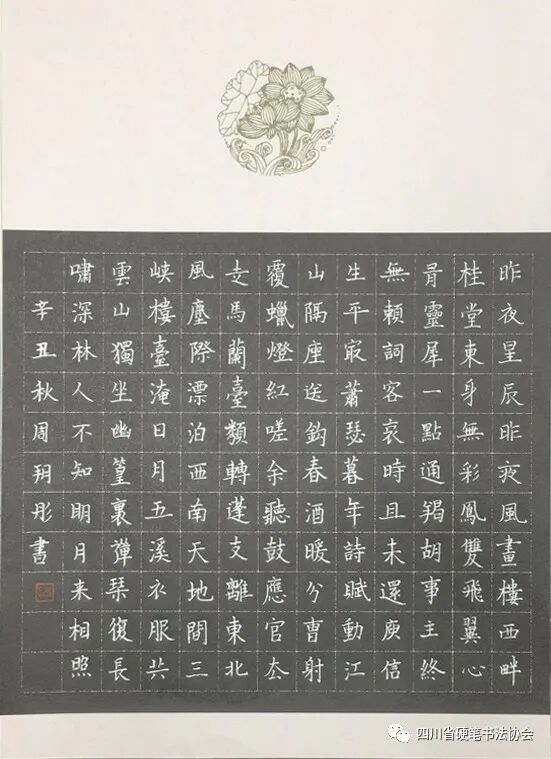 昨夜星辰昨夜風畫樓西畔
桂堂東身無彩鳳雙飛翼心
有靈犀一點通羯胡事主終
無賴詞客哀時且未還庾信
生平最蕭瑟暮年詩賦動江
山隔座送鈎春酒暖分曹射
覆蠟燈紅嗟余聽鼓應官去
走馬蘭臺類轉蓬支離東北
風塵際漂泊西南天地間三
峡樓臺淹日月五溪衣服共
雲山獨坐幽篁裏彈琴復長
嘯深林人不知明月来相照
辛丑秋周玥彤書
四川省硬笔书法协会